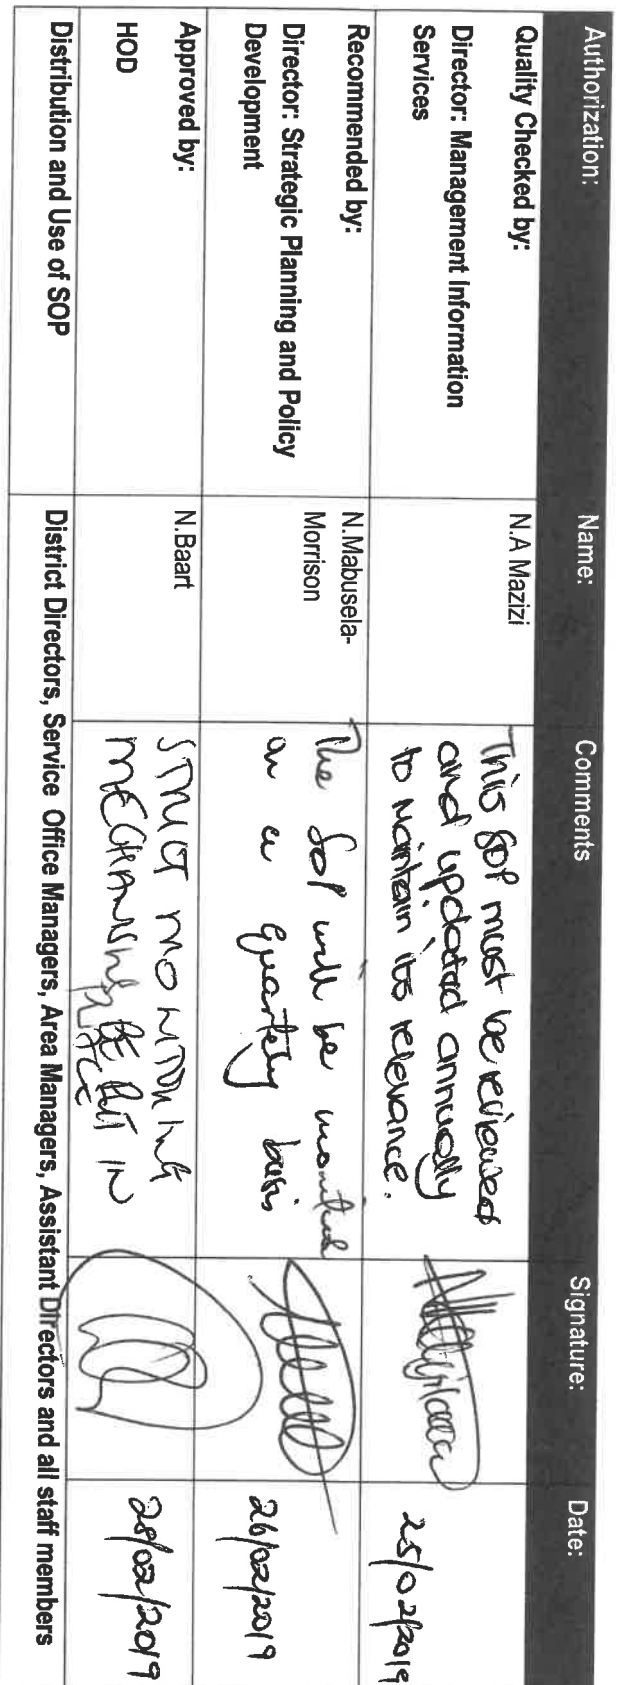 Authorization: Name: Comments Signature: Date:
Quality Checked by:
Director: Management Information
Services
N.A Mazizi
This SOP must be reviewed
and updated annually
to maintain its relevance.
25/02/2019
Recommended by:
Director: Strategic Planning and Policy
Development
N.Mabusela-
Morrison
The SoP will be monitored
on a quartely basis
26/02/2019
Approved by:
HOD
N.Baart
STRICT MONITORING
MECHANISM BE PUT IN
28/02/2019
Distribution and Use of SOP
District Directors, Service Office Managers, Area Managers, Assistant Directors and all staff members